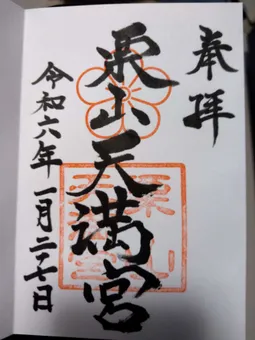 奉拝
栗山天満宮
令和六年一月二十七日